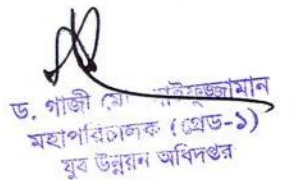 ড. গাজী মো সাইফুজ্জামান
মহাপরিচালক (গ্রেড-১)
যুব উন্নয়ন অধিদপ্তর